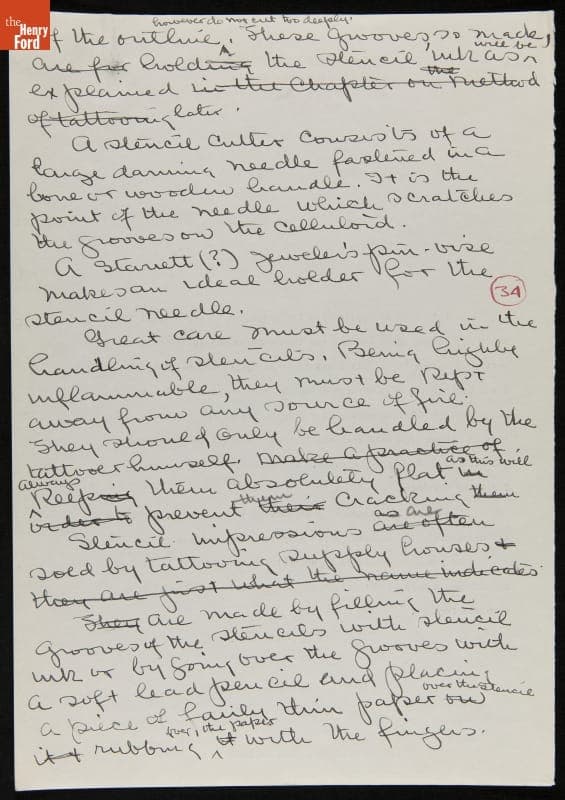 the
Henry
Ford
however do not cut too deeply.
of the outline. These grooves so made,
will be
are for holding the stencil ink as
the
explained in the Chapter on method
of tattooing later.
A stencil cutter consists of a
large darning needle fastened in a
bone or wooden handle. It is the
point of the needle which scratches
the grooves on the celluloid.
A Starrett (?) jeweler's pin-vise
makes an ideal holder for the
34
stencil needle.
Great care must be used in the
handling of stencils. Being highly
inflammable, they must be kept
away from any source of fire.
They should only be handled by the
tattooer himself. make a practice of
always
as this will
Keeping them absolutely flat in
them
order to prevent their cracking them
as are
Stencil impressions are often
sold by tattooing supply houses +
they are just what the name indicates
They are made by filling the
grooves of the stencils with stencil
ink or by going over the grooves with
a soft lead pencil and placing
over the stencil
a piece of fairly thin paper on
over, the paper
it + rubbing it with the fingers.